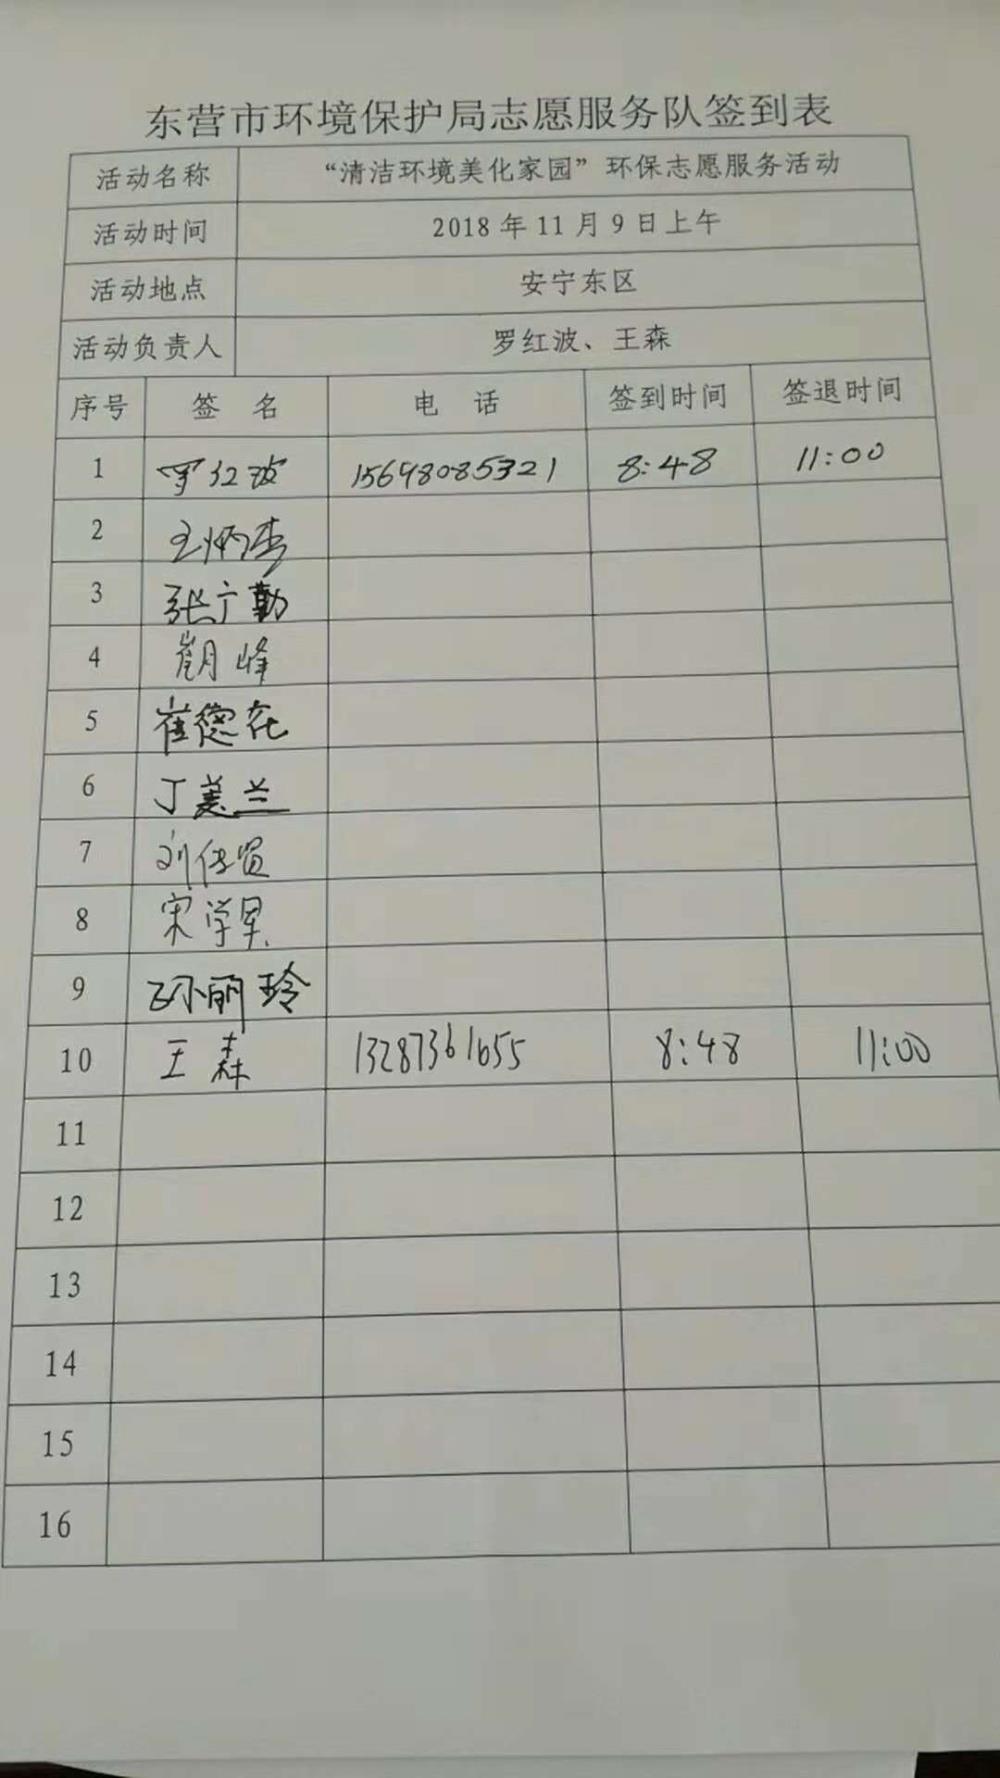 东营市环境保护局志愿服务队签到表
活动名称 “清洁环境美化家园”环保志愿服务活动
活动时间 2018年11月9日上午
活动地点 安宁东区
活动负责人 罗红波、王森
序号 签 名 电 话 签到时间 签退时间
1 罗红波 15698085321 8:48 11:00
2 王炳杰
3 张广勤
4 崔月峰
5 崔德花
6 丁美兰
7 刘传贤
8 宋学
9 孙丽玲
10 王森 13287361655 8:48 11:00
11
12
13
14
15
16